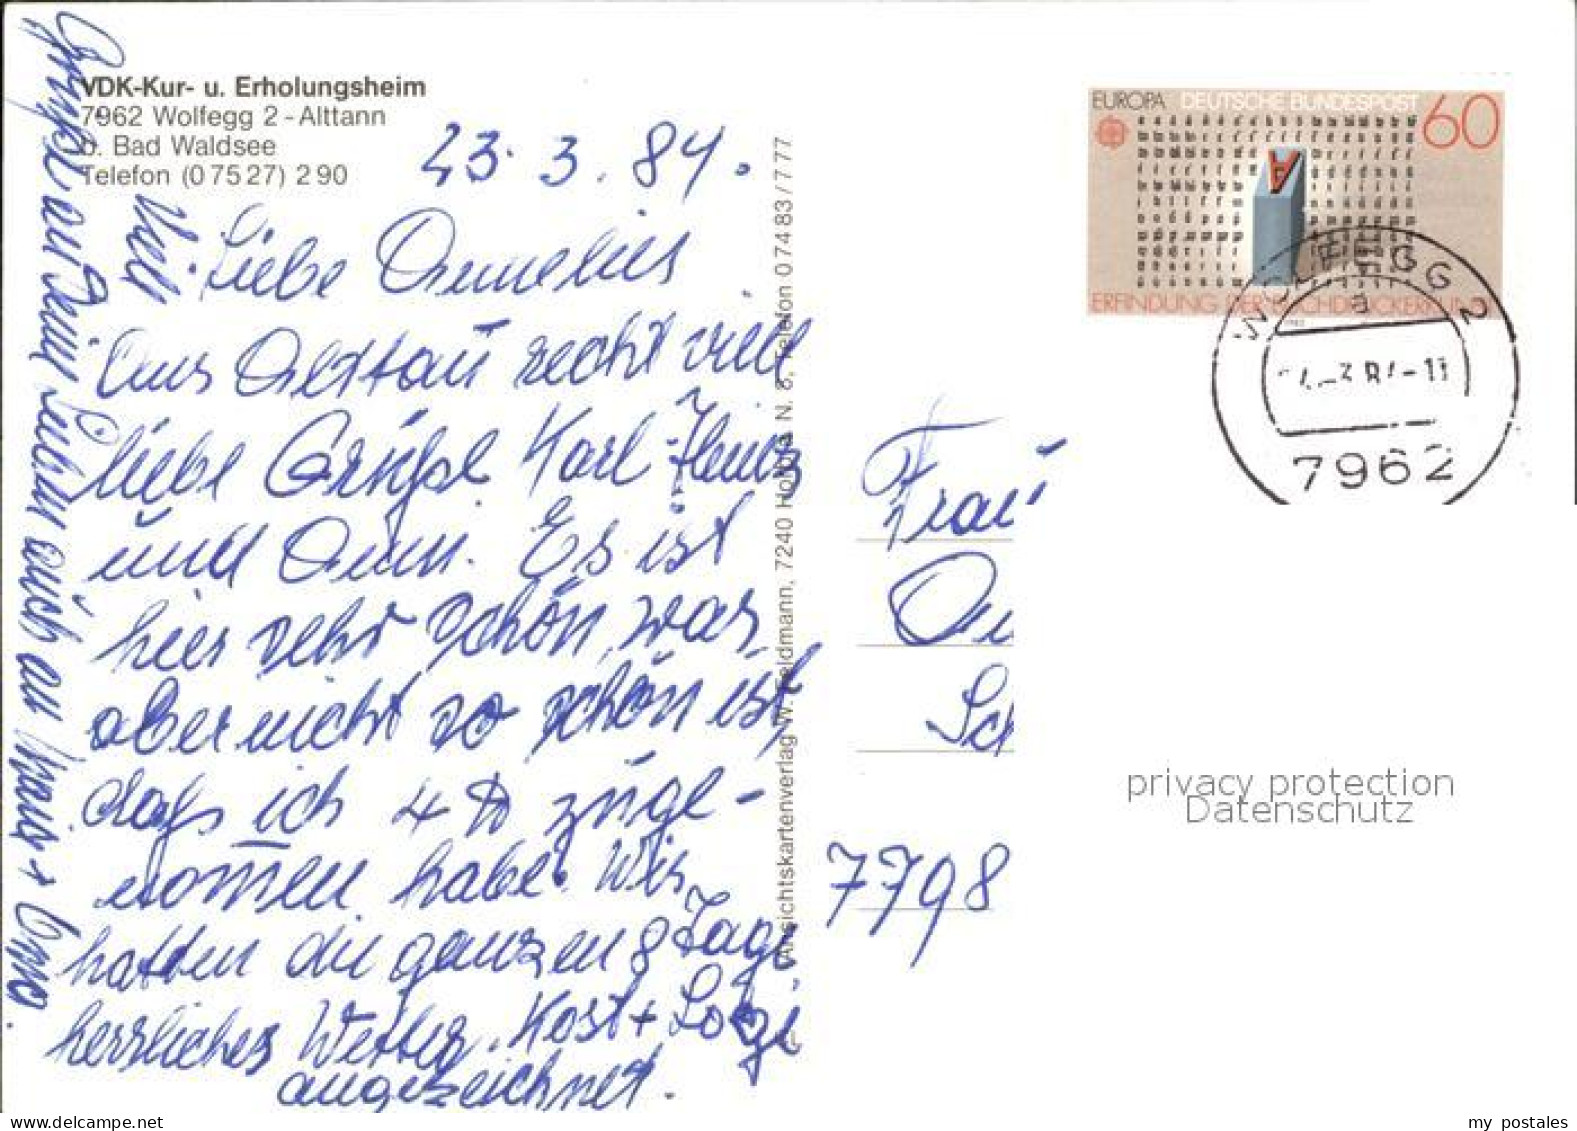 VDK-Kur- u. Erholungsheim
7962 Wolfegg 2 - Alttann
b. Bad Waldsee
Telefon (0 75 27) 2 90
23.3.84.
Liebe Annelies
Aus Alttan recht viele
liebe Grüße Karl-Heinz
und Ann. Es ist
hier sehr schön, was
aber nicht so schön ist,
daß ich 4 ℔ zuge-
nommen habe. Wir
hatten die ganzen 8 Tage
herrliches Wetter. Kost +
ausgezeichnet.
Viel
Grüße an Deine auch an +
Ansichtskartenverlag W. Feldmann, 7240 Horb a. N. 8, Telefon 0 74 83 / 7 77
EUROPA DEUTSCHE BUNDESPOST 60
ERFINDUNG DER BUCHDRUCKERKUNST
WOLFEGG 2
a
7962
Frau
Sch
7798
privacy protection
Datenschutz
my postales